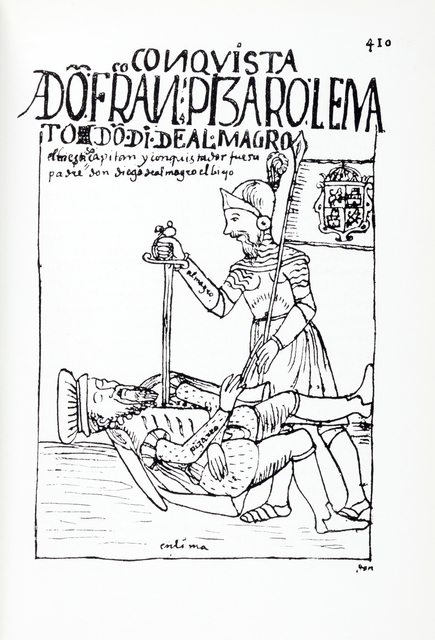 410
CONQVISTA
ADÕ FRAN.CO PIZARO LE MA
TO DÕ DI.º DE ALMAGRO
el mestiso capitan y conquistador fue su
padre don diego de almagro el bigo
almagro
pizarro
en lima